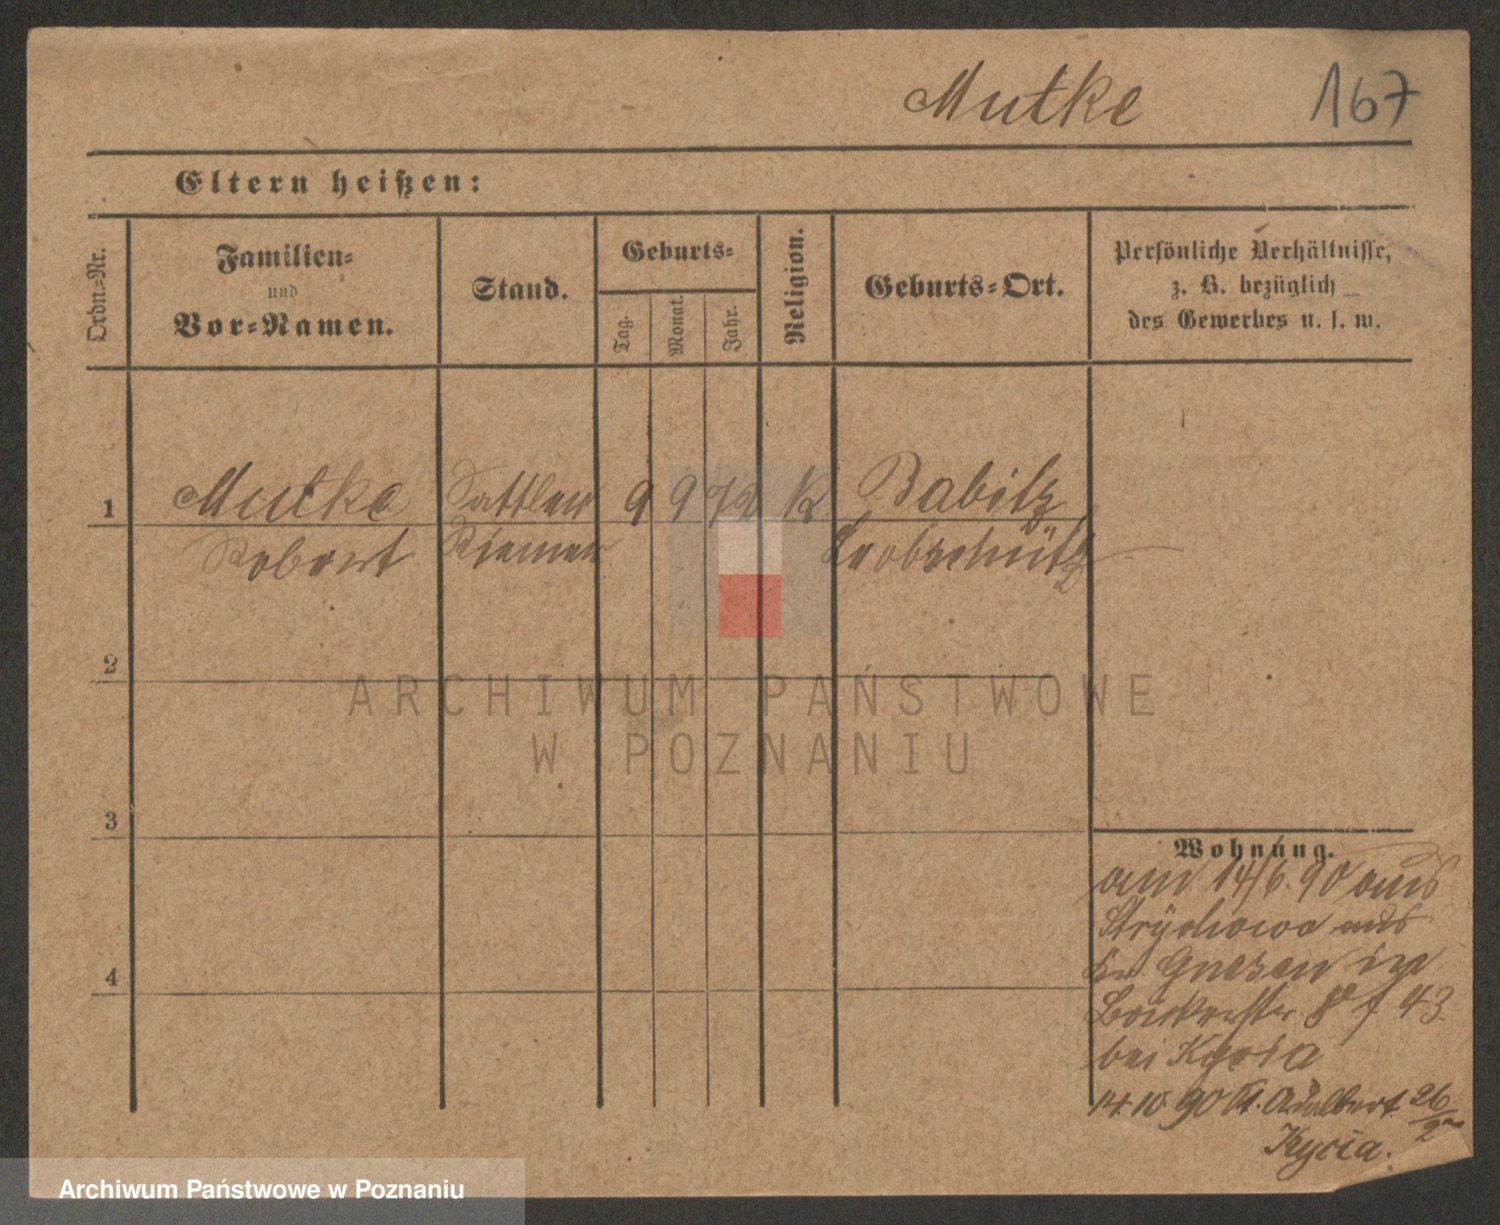 Mutke 167
Eltern heißen:
Ordn.-Nr.
Familien-
und
Vor-Namen.
Stand.
Geburts-
Tag.
Monat.
Jahr.
Religion.
Geburts-Ort.
Persönliche Verhältnisse,
z. B. bezüglich
des Gewerbes u. s. w.
1 Mutke Sattler 9 9 72 K Babitz
Robert Riemer Leobschütz
2
3
4
Wohnung.
am 14/6. 90 aus
Strychowo aus
Kr Gnesen in
8 43
bei Kycia
14.10 90 St. Adalbert 26/2
Kycia.
ARCHIWUM PAŃSTWOWE
W POZNANIU
Archiwum Państwowe w Poznaniu